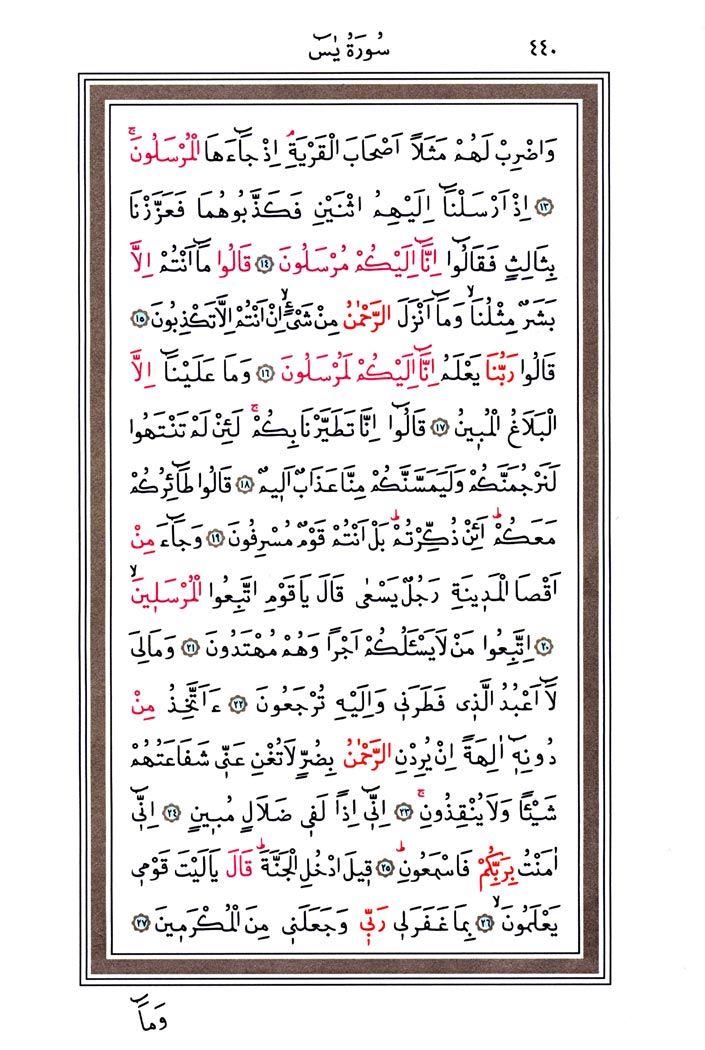 ٤٤٠ سُورَةُ يٰسٓ
وَاضْرِبْ لَهُمْ مَثَلًا اَصْحَابَ الْقَرْيَةِۢ اِذْ جَٓاءَهَا الْمُرْسَلُونَۚ
﴿١٣﴾ اِذْ اَرْسَلْنَٓا اِلَيْهِمُ اثْنَيْنِ فَكَذَّبُوهُمَا فَعَزَّزْنَا
بِثَالِثٍ فَقَالُٓوا اِنَّٓا اِلَيْكُمْ مُرْسَلُونَ ﴿١٤﴾ قَالُوا مَٓا اَنْتُمْ اِلَّا
بَشَرٌ مِثْلُنَاۙ وَمَٓا اَنْزَلَ الرَّحْمٰنُ مِنْ شَيْءٍۙ اِنْ اَنْتُمْ اِلَّا تَكْذِبُونَ ﴿١٥﴾
قَالُوا رَبُّنَا يَعْلَمُ اِنَّٓا اِلَيْكُمْ لَمُرْسَلُونَ ﴿١٦﴾ وَمَا عَلَيْنَٓا اِلَّا
الْبَلَاغُ الْمُب۪ينُ ﴿١٧﴾ قَالُٓوا اِنَّا تَطَيَّرْنَا بِكُمْۚ لَئِنْ لَمْ تَنْتَهُوا
لَنَرْجُمَنَّكُمْ وَلَيَمَسَّنَّكُمْ مِنَّا عَذَابٌ اَل۪يمٌ ﴿١٨﴾ قَالُوا طَٓائِرُكُمْ
مَعَكُمْۜ اَئِنْ ذُكِّرْتُمْۜ بَلْ اَنْتُمْ قَوْمٌ مُسْرِفُونَ ﴿١٩﴾ وَجَٓاءَ مِنْ
اَقْصَا الْمَد۪ينَةِ رَجُلٌ يَسْعٰى قَالَ يَا قَوْمِ اتَّبِعُوا الْمُرْسَل۪ينَۙ
﴿٢٠﴾ اِتَّبِعُوا مَنْ لَا يَسْـَٔلُكُمْ اَجْرًا وَهُمْ مُهْتَدُونَ ﴿٢١﴾ وَمَا لِيَ
لَٓا اَعْبُدُ الَّذ۪ي فَطَرَن۪ي وَاِلَيْهِ تُرْجَعُونَ ﴿٢٢﴾ ءَاَتَّخِذُ مِنْ
دُونِه۪ٓ اٰلِهَةً اِنْ يُرِدْنِ الرَّحْمٰنُ بِضُرٍّ لَا تُغْنِ عَنّ۪ي شَفَاعَتُهُمْ
شَيْـًٔا وَلَا يُنْقِذُونِۚ ﴿٢٣﴾ اِنّ۪ٓي اِذًا لَف۪ي ضَلَالٍ مُب۪ينٍ ﴿٢٤﴾ اِنّ۪ٓي
اٰمَنْتُ بِرَبِّكُمْ فَاسْمَعُونِۜ ﴿٢٥﴾ ق۪يلَ ادْخُلِ الْجَنَّةَۜ قَالَ يَا لَيْتَ قَوْم۪ي
يَعْلَمُونَۙ ﴿٢٦﴾ بِمَا غَفَرَ ل۪ي رَبّ۪ي وَجَعَلَن۪ي مِنَ الْمُكْرَم۪ينَ ﴿٢٧﴾
وَمَٓا